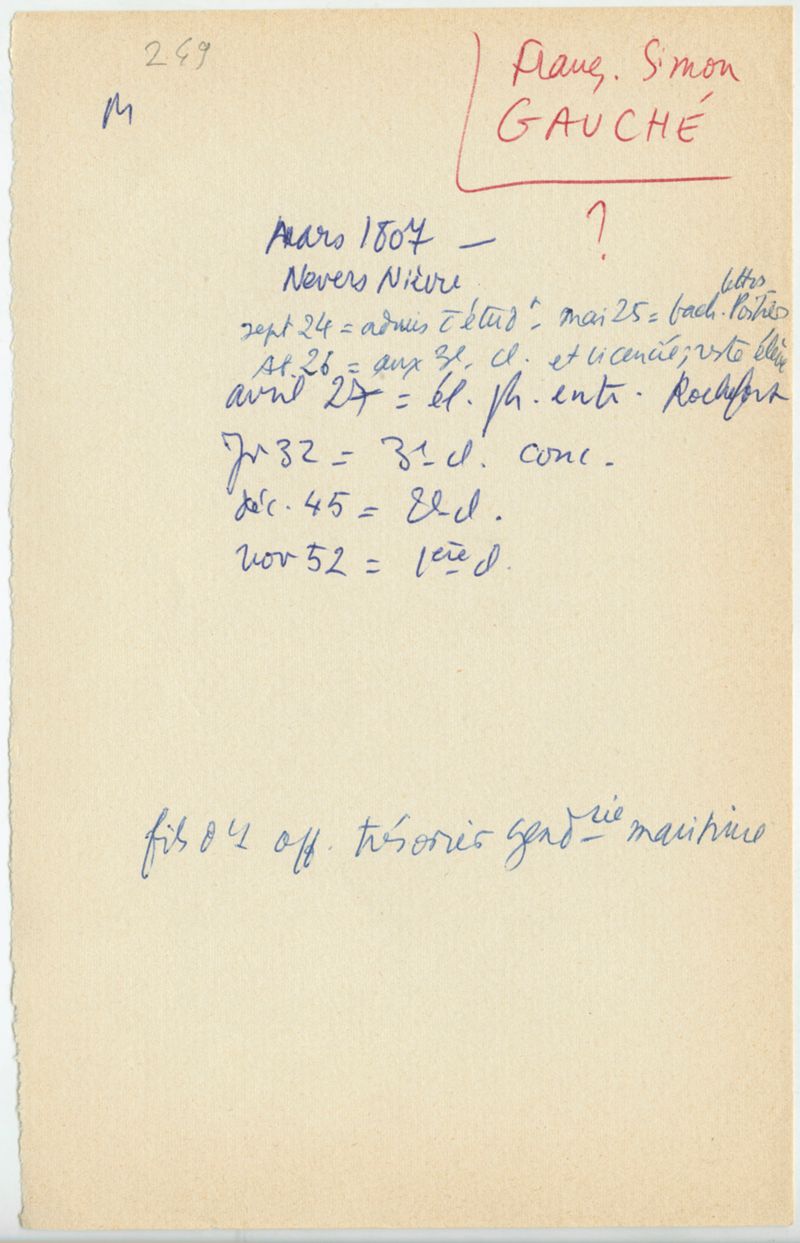 249
Franç. Simon
GAUCHÉ
M
?
Mars 1807 —
Nevers Nièvre
lettres
sept 24 = admis étudt - mai 25 = bach. Poitiers
26 = aux 3e. cl. et licencié, reste élève
avril 27 = él. ph. entr. Rochefort
Jr 32 = 3e cl. conc.
déc. 45 = 2e cl.
nov 52 = 1ère cl.
fils d'1 off. trésorier gendrie maritime